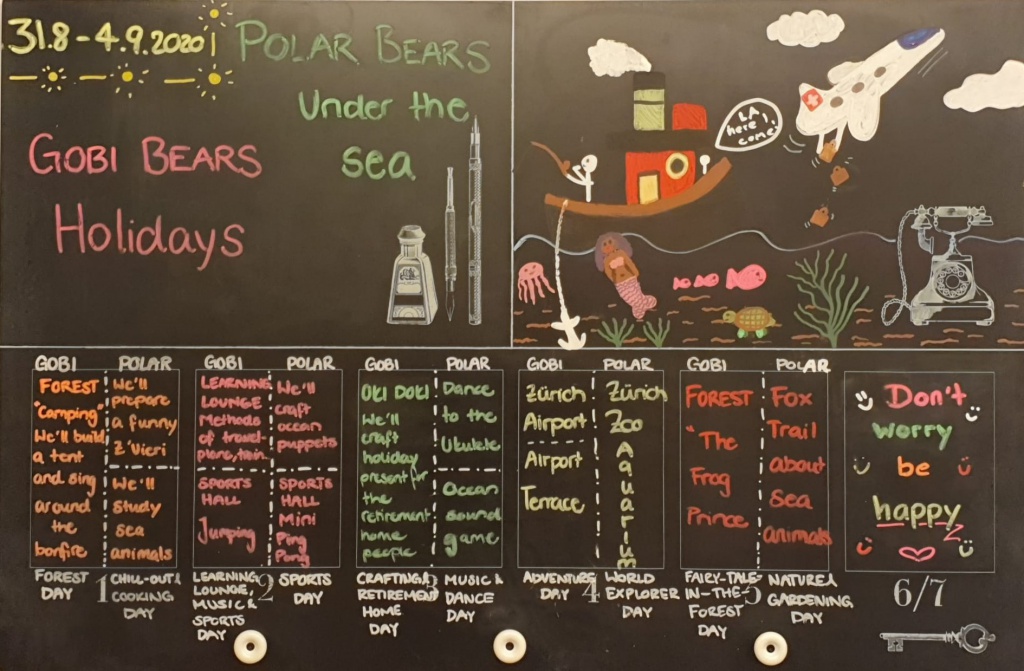 31.8 - 4.9.2020
POLAR BEARS
Under the
sea
GOBI BEARS
Holidays
LA,
here I
come!
GOBI
POLAR
FOREST
"Camping"
We'll build
a tent
and sing
around
the
bonfire
We'll
prepare
a funny
Z'Vieri
We'll
study
sea
animals
FOREST
DAY
1
CHILL-OUT &
COOKING
DAY
GOBI
POLAR
LEARNING
LOUNGE
Methods
of travel-
plane, train..
SPORTS
HALL
Jumping
We'll
craft
ocean
puppets
SPORTS
HALL
Mini
Ping
Pong
LEARNING
LOUNGE,
MUSIC &
SPORTS
DAY
2
SPORTS
DAY
GOBI
POLAR
OKI DOKI
We'll
craft
holiday
present for
the
retirement
home
people
Dance
to the
Ukulele
Ocean
sound
game
CRAFTING &
RETIREMENT
HOME
DAY
3
MUSIC &
DANCE
DAY
GOBI
POLAR
Zürich
Airport
Airport
Terrace
Zürich
Zoo
Aquarium
ADVENTURE
DAY
4
WORLD
EXPLORER
DAY
GOBI
POLAR
FOREST
"The
Frog
Prince
Fox
Trail
about
sea
animals
FAIRY-TALE-
IN-THE-
FOREST
DAY
5
NATURE &
GARDENING
DAY
Don't
worry
be
happy
6/7